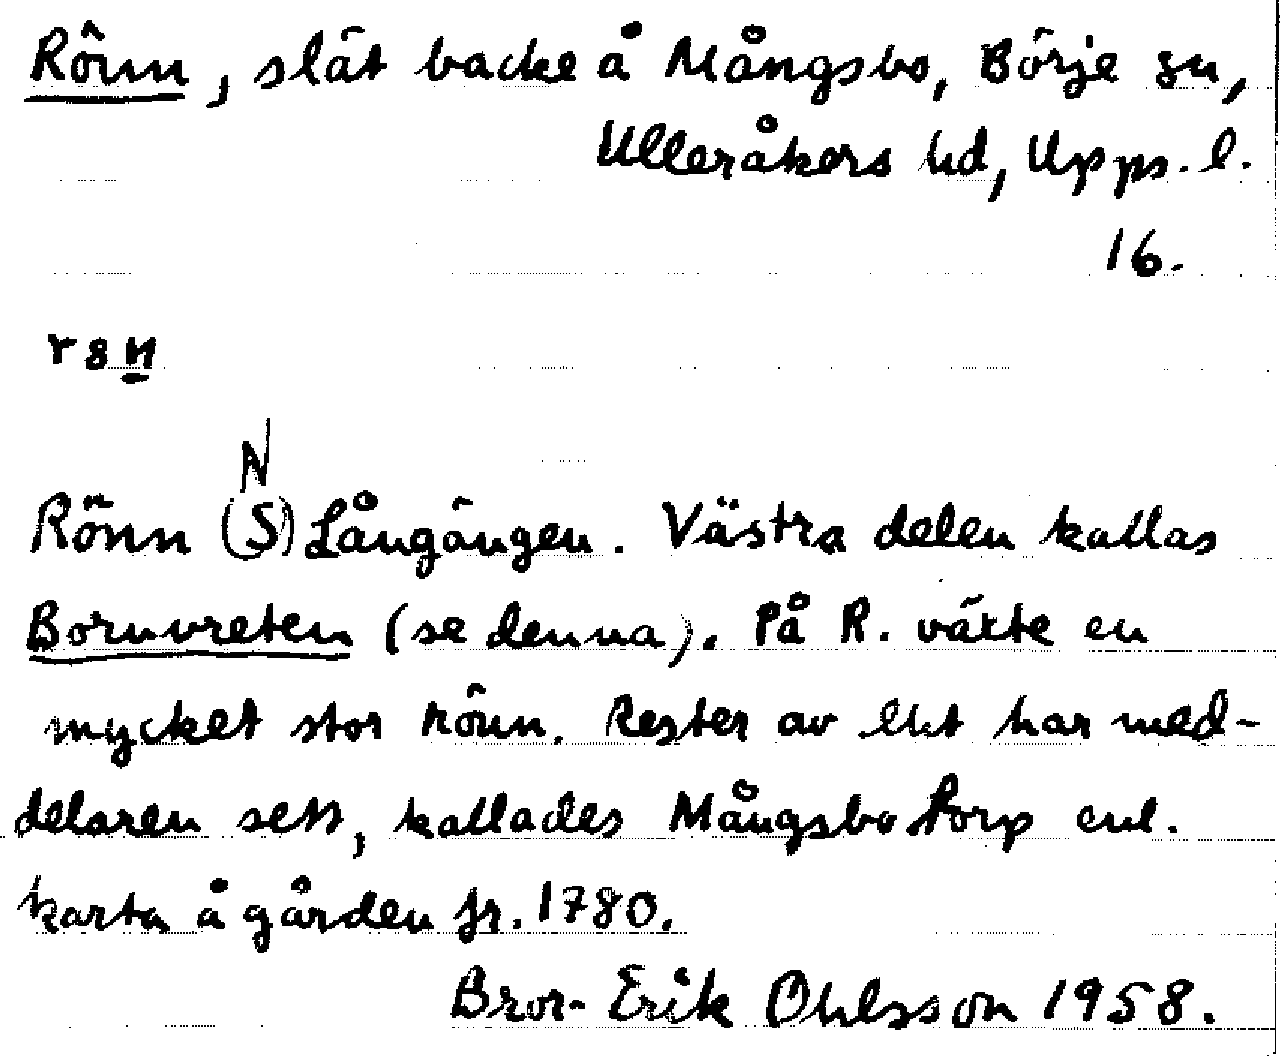 Rönn, slät backe å Mångsbo, Börje sn,
Ulleråkers hd, Upps. l.
16.
r8n
N
Rönn (S) Långängen. Västra delen kallas
Bornvreten (se denna). På R. växte en
mycket stor rönn. Rester av ett har med-
delaren sett, kallades Mångsbo torp enl.
karta å gården fr. 1780.
Bror-Erik Ohlsson 1958.